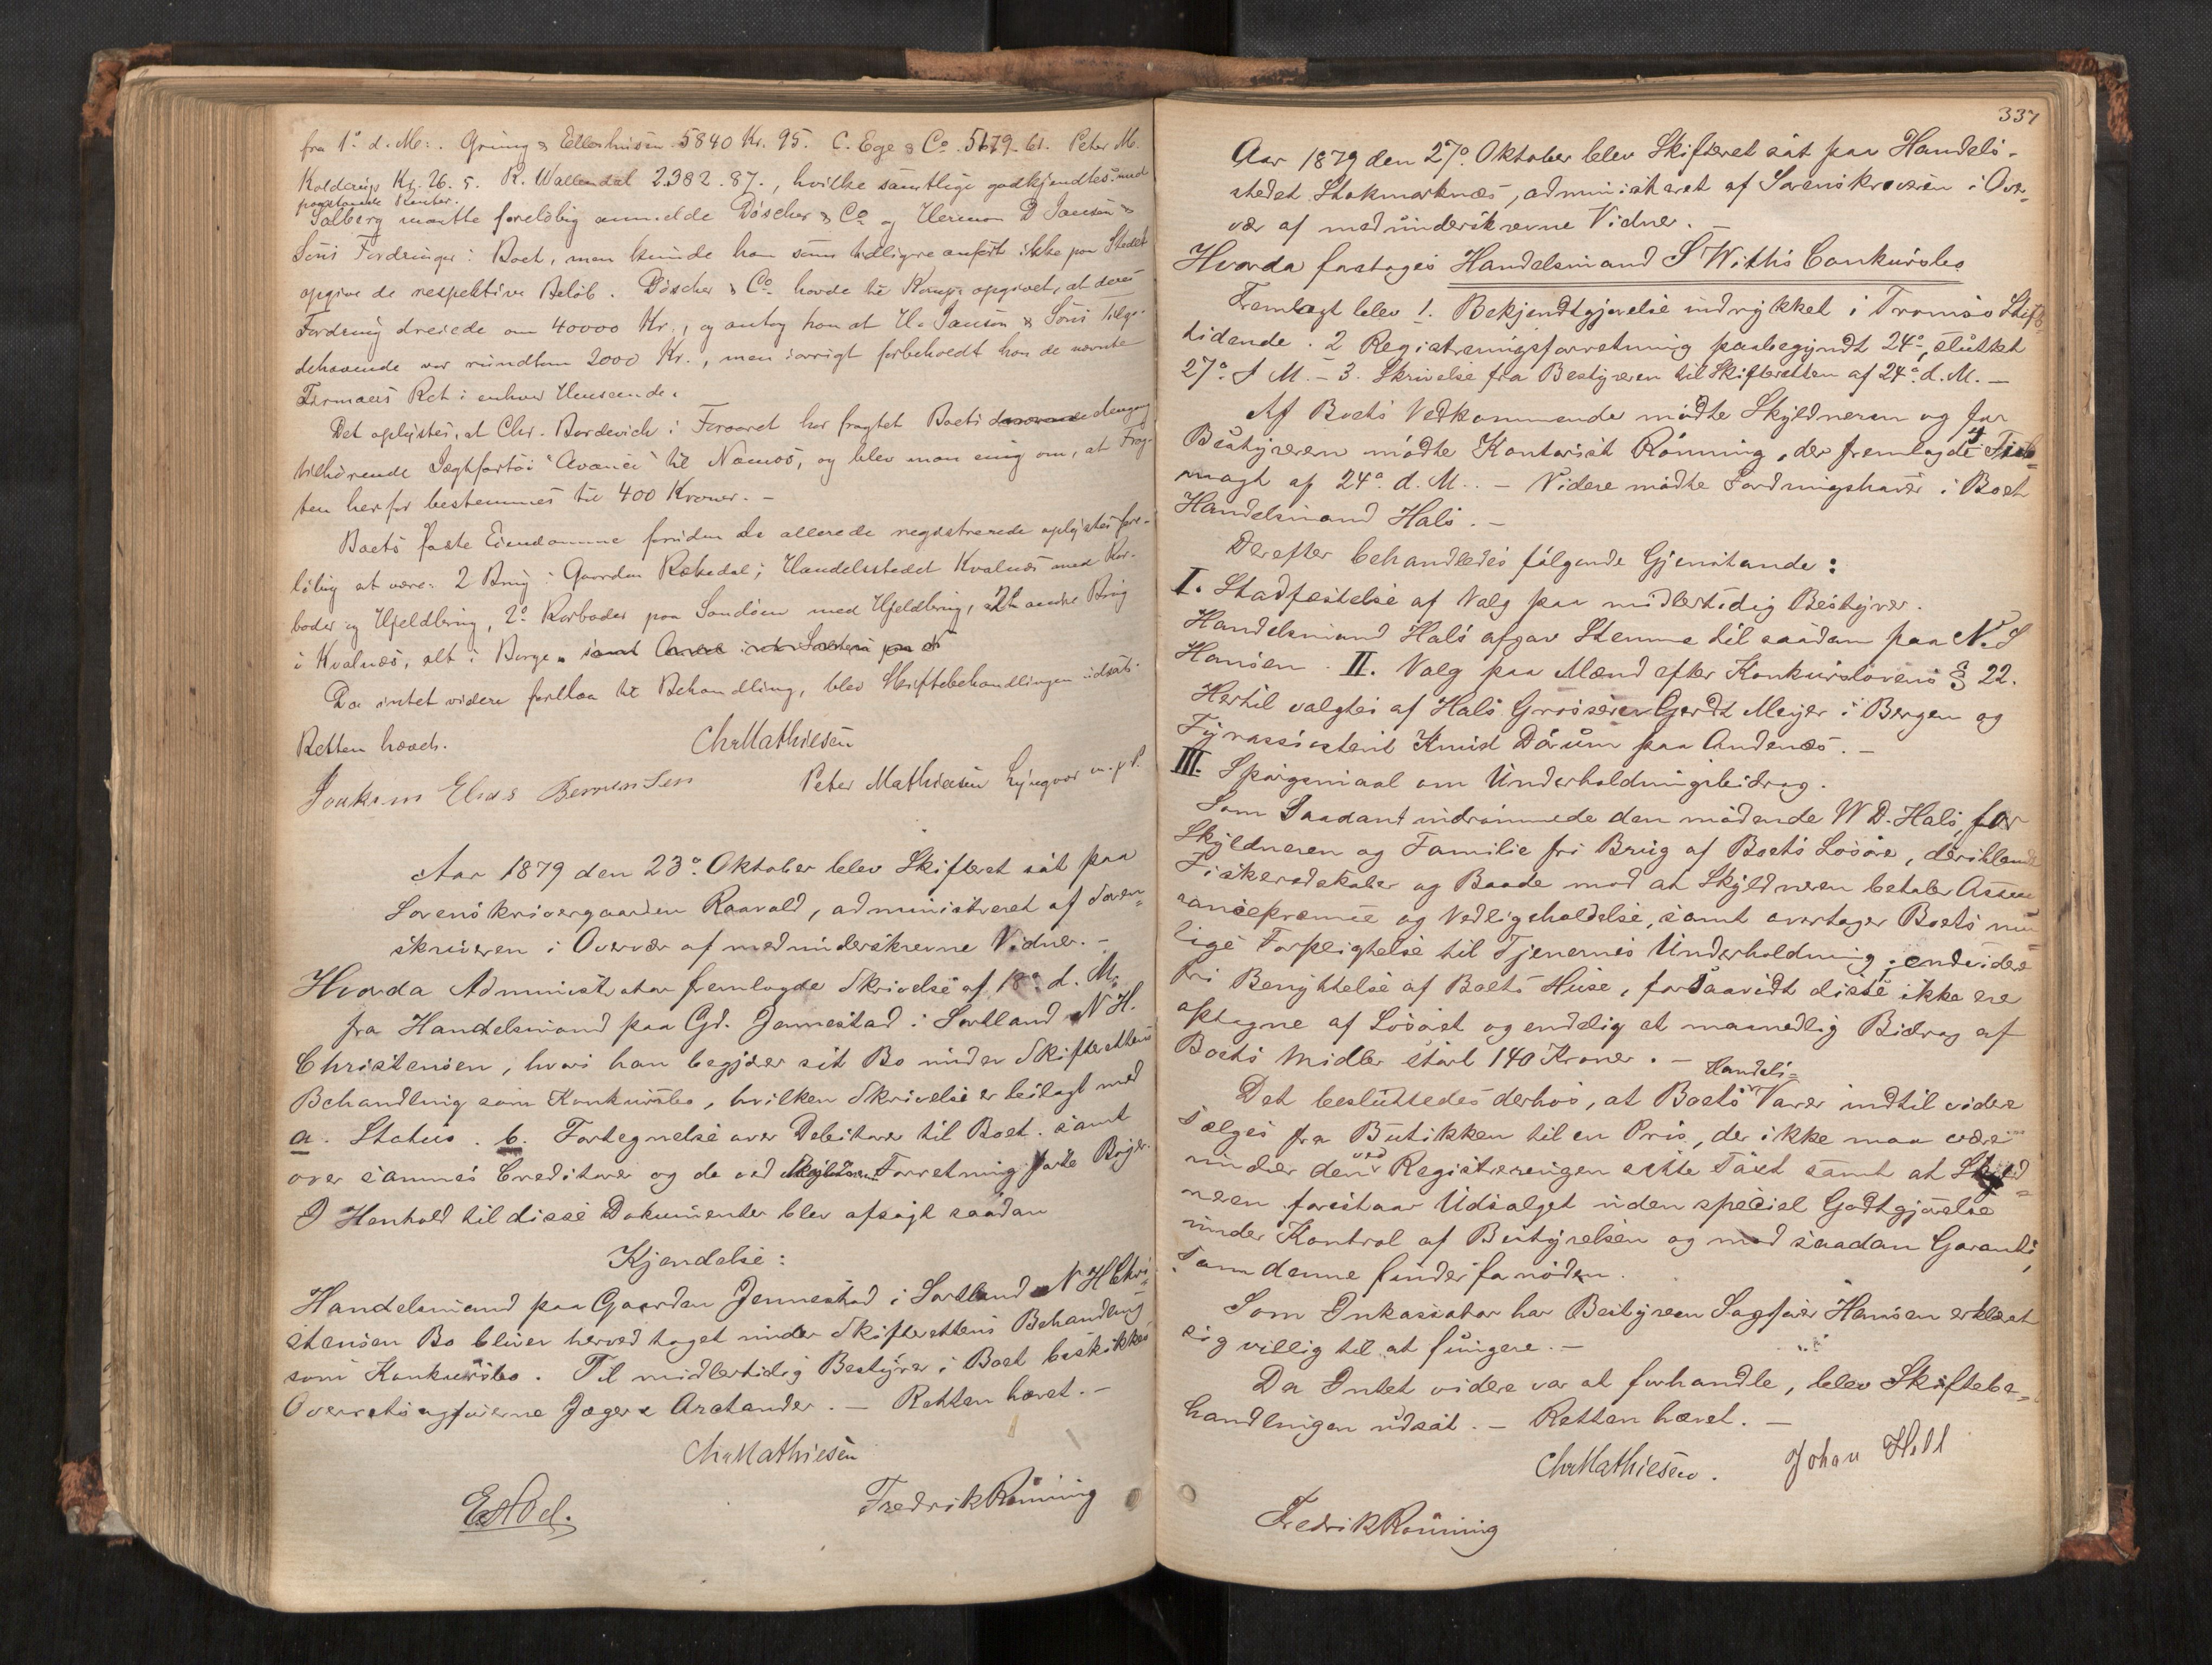 fra 1ᵒ d. M. Gruning & Ellerhusen 5840 Kr. 95. C. Ege & Co. 5179.61. Peter M.
Kolderup Kr. 26.5. R. Wallendal 2382.87., hvilke samtlige godkjendtes med
paastaaede Renter.
Solberg maatte foreløbig anmelde Döscher & Co og Herman D Jansen &
Søns Fordringer i Boet, men kunde han som tidligere anført ikke paa Stedet
opgive de respektive Beløb. Döscher & Co havde til Komp. opgivet, at deres
Fordring dreiede om 40000 Kr., og antog han at H. Janson & Søns Tilgo-
dehavende var rundtom 2000 Kr., men iøvrigt forbeholdt han de nævnte
Firmaers Ret i enhver Henseende.
Det oplystes, at Chr. Bordevich i Foraaret har fragtet Boets daværende dengang
tilhørende Jægtfartøi "Avance" til Namsos, og blev man enig om, at Frag-
ten herfor bestemmes til 400 Kroner. -
Boets faste Eiendomme foruden de allerede registrerede oplystes fore-
løbig at være: 2 Brug i Gaarden Rekedal; Handelsstedet Kvalnæs med Ror-
boder og Hjeldbrug, 2ᵒ Rorboder paa Sandøen med Hjeldbrug, 2 andre Brug
i Kvalnæs, alt i Borge.
Da intet videre forelaa til Behandling, blev Skiftebehandlingen udsat.
Retten hævet.
Chr Mathiesen
Joakim Elias Berentsen Peter Mathiesen Lyngvær m. p. P.
Aar 1879 den 23ᵒ Oktober blev Skifteret sat paa
Sorenskrivergaarden Raavold, administreret af Soren-
skriveren i Overvær af medunderskrevne Vidner. -
Hvorda Administrator fremlagde Skrivelse af 18ᵒ d. M.
fra Handelsmand paa Gd. Jennestad i Sortland N H.
Christensen, hvori han begjærer sit Bo under Skifterettens
Behandling som Konkursbo, hvilken Skrivelse er bilagt med
a. Status. b. Fortegnelse over Debitorer til Boet. samt
over sammes Creditorer og de ved Forretning førte Bøger.
I Henhold til disse Dokumenter blev afsagt saadan
Kjendelse:
Handelsmand paa Gaarden Jennestad i Sortland N H Chri-
stensen Bo bliver herved taget under Skifterettens Behandling
som Konkursbo. Til midlertidig Bestyrer i Boet beskikkes
Overretssagførerne Jæger & Arctander. - Retten hævet. -
Chr Mathiesen
Fredrik Rønning
337
Aar 1879 den 27ᵒ Oktober blev Skifteret sat paa Handels-
stedet Stokmarknæs, administreret af Sorenskriveren i Over-
vær af medunderskrevne Vidner.
Hvorda foretoges Handelsmand S Withs Conkursbo
Fremlagt blev 1. Bekjendtgjørelse indrykket i Tromsø Stifts-
tidende. 2 Registreringsforretning paabegyndt 24ᵒ, sluttet
27ᵒ d M. - 3. Skrivelse fra Bestyreren til Skifteretten af 24ᵒ d. M. -
Af Boets Vedkommende mødte Skyldneren og for
Bestyreren mødte Kontorist Rønning, der fremlagde 4
magt af 24ᵒ d. M. - Videre mødte Fordringshaver i Boet
Handelsmand Hals. -
Derefter behandledes følgende Gjenstande:
I. Stadfæstelse af Valg paa midlertidig Bestyrer.
Handelsmand Hals afgav Stemme til saadan paa N. S
Hansen. II. Valg paa Mænd efter Konkurslovens § 22.
Hertil valgtes af Hals Grosserer Gerdt Meyer i Bergen og
Fyrassistent Knud Dørum paa Andenæs. -
III. Spørgsmaal om Underholdningsbidrag.
Som Saadant indrømmede den mødende W D. Hals, for
Skyldneren og Familie fri Brug af Boets Løsøre, deriblandt
Fiskeredskaber og Baade mod at Skyldneren betaler Assu-
rancepræmie og Vedligeholdelse, samt overtager Boets mu-
lige Forpligtelse til Tjenernes Underholdning; endvidere
fri Benyttelse af Boets Huse, forsaavidt disse ikke ere
optagne af Løsøret og endelig et maanedlig Bidrag af
Boets Midler stort 140 Kroner. -
Handels-
Det besluttedes derhos, at Boets Varer indtil videre
sælges fra Butikken til en Pris, der ikke maa være
mindre den ved Registreringen satte Taxt samt at Skyld-
neren forestaar Udsalget uden speciel Godtgjørelse
under Kontrol af Bestyrelsen og mod saadan Garanti,
som denne finder fornøden.
Som Inkassator har Bestyreren Sagfører Hansen erklæret
sig villig til at fungere. -
Da Intet videre var at forhandle, blev Skiftebe-
handlingen udsat. - Retten hævet. -
Chr Mathiesen. Johan Hell
Fredrik Rønning